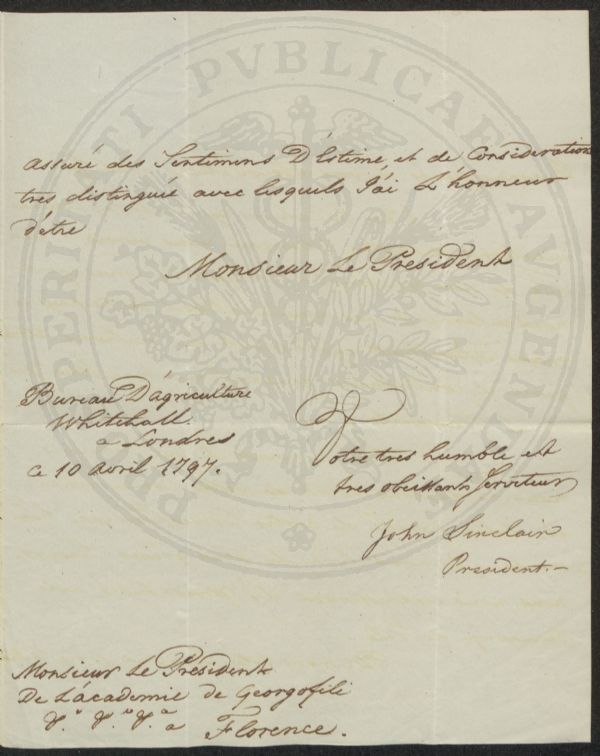 PROSPERITATI PVBLICAE AVGENDAE
assuré des Sentimens D'Estime, et de Consideration
tres distinguée avec lesquels J'ai L'honneur
d'etre
Monsieur Le President
Bureau D'agriculture
Whitehall
a Londres
ce 10 avril 1797.
Votre tres humble et
tres obeissant Serviteur
John Sinclair
President.-
Monsieur Le President
De L'academie de Georgofili
a Florence.